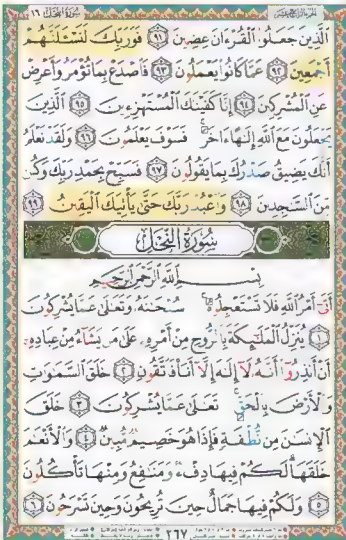 سورة النحل ١٦
الذين جعلوا القرءان عضين ٩١ فوربك لنسئلنهم
أجمعين ٩٢ عما كانوا يعملون ٩٣ فاصدع بما تؤمر وأعرض
عن المشركين ٩٤ إنا كفينك المستهزءين ٩٥ الذين
يجعلون مع الله إلها ءاخر فسوف يعلمون ٩٦ ولقد نعلم
أنك يضيق صدرك بما يقولون ٩٧ فسبح بحمد ربك وكن
من السجدين ٩٨ واعبد ربك حتى يأتيك اليقين ٩٩
سورة النحل
بسم الله الرحمن الرحيم
أتى أمر الله فلا تستعجلوه سبحنه وتعلى عما يشركون
١ ينزل الملئكة بالروح من أمره على من يشاء من عباده
أن أنذروا أنه لا إله إلا أنا فاتقون ٢ خلق السموت
والأرض بالحق تعلى عما يشركون ٣ خلق
الإنسن من نطفة فإذا هو خصيم مبين ٤ والأنعم
خلقها لكم فيها دفء ومنفع ومنها تأكلون
٥ ولكم فيها جمال حين تريحون وحين تسرحون ٦
٢٦٧